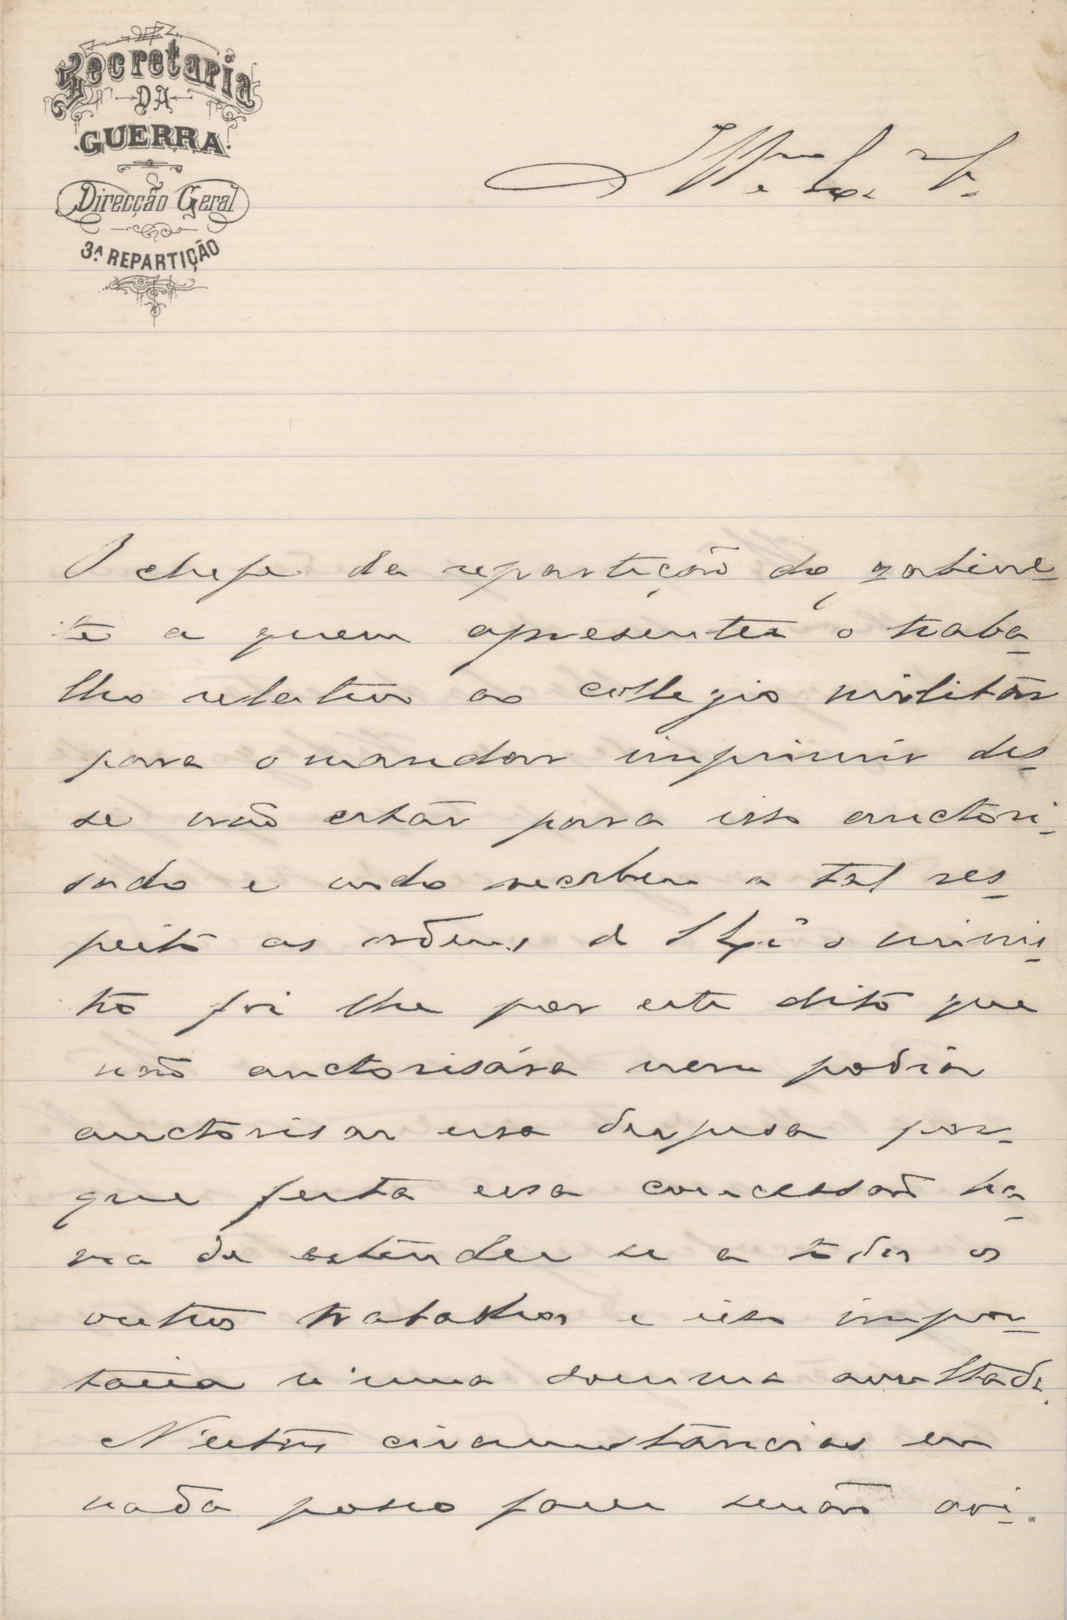 Secretaria
DA
GUERRA
Direcção Geral
3.ª REPARTIÇÃO
Ill.mo e Ex.mo Sr.
O chefe da repartição do gabine-
te a quem apresentei o traba-
lho relativo ao collegio militar
para o mandar imprimir dis-
se não estar para isso auctori-
sado e indo receber a tal res-
peito as ordens de S. Ex.ª o minis-
tro foi lhe por este dito que
não auctorisára nem podia
auctorisar essa despesa por-
que feita essa concessão ha-
via de estender se a todos os
outros trabalhos e isso impor-
taria n'uma somma avultada.
N'estas circumstancias em
nada posso fazer senão avi-